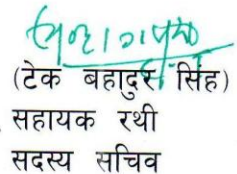 (टेक बहादुर सिंह)
सहायक रथी
सदस्य सचिव